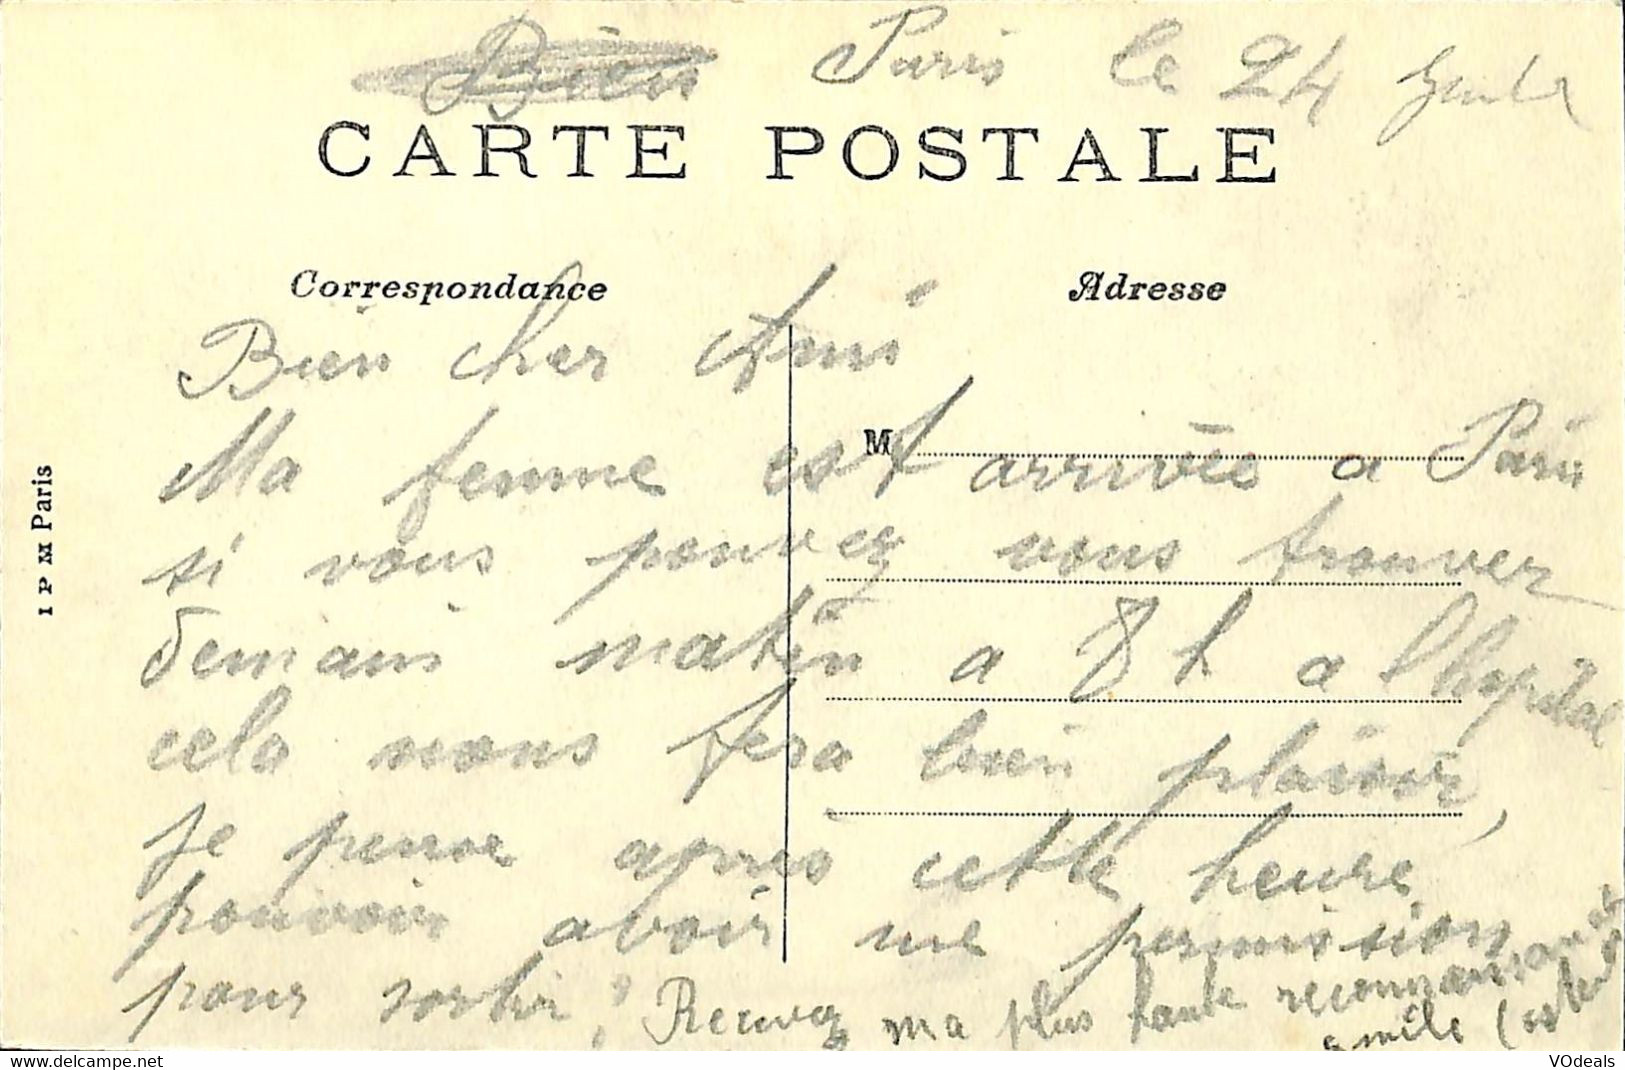 Bien Paris le 24
CARTE POSTALE
Correspondance Adresse
Bien cher Ami
M
Ma femme est arrivée a Paris
si vous pouvez vous trouver
demain matin a 8 h a lhopital
cela nous fera bien plaisir,
je pense apres cette heure
pouvoir avoir une permission
pour sortir, Recevez ma plus haute reconnaissance
Emile
I P M Paris
VOdeals
https://www.delcampe.net